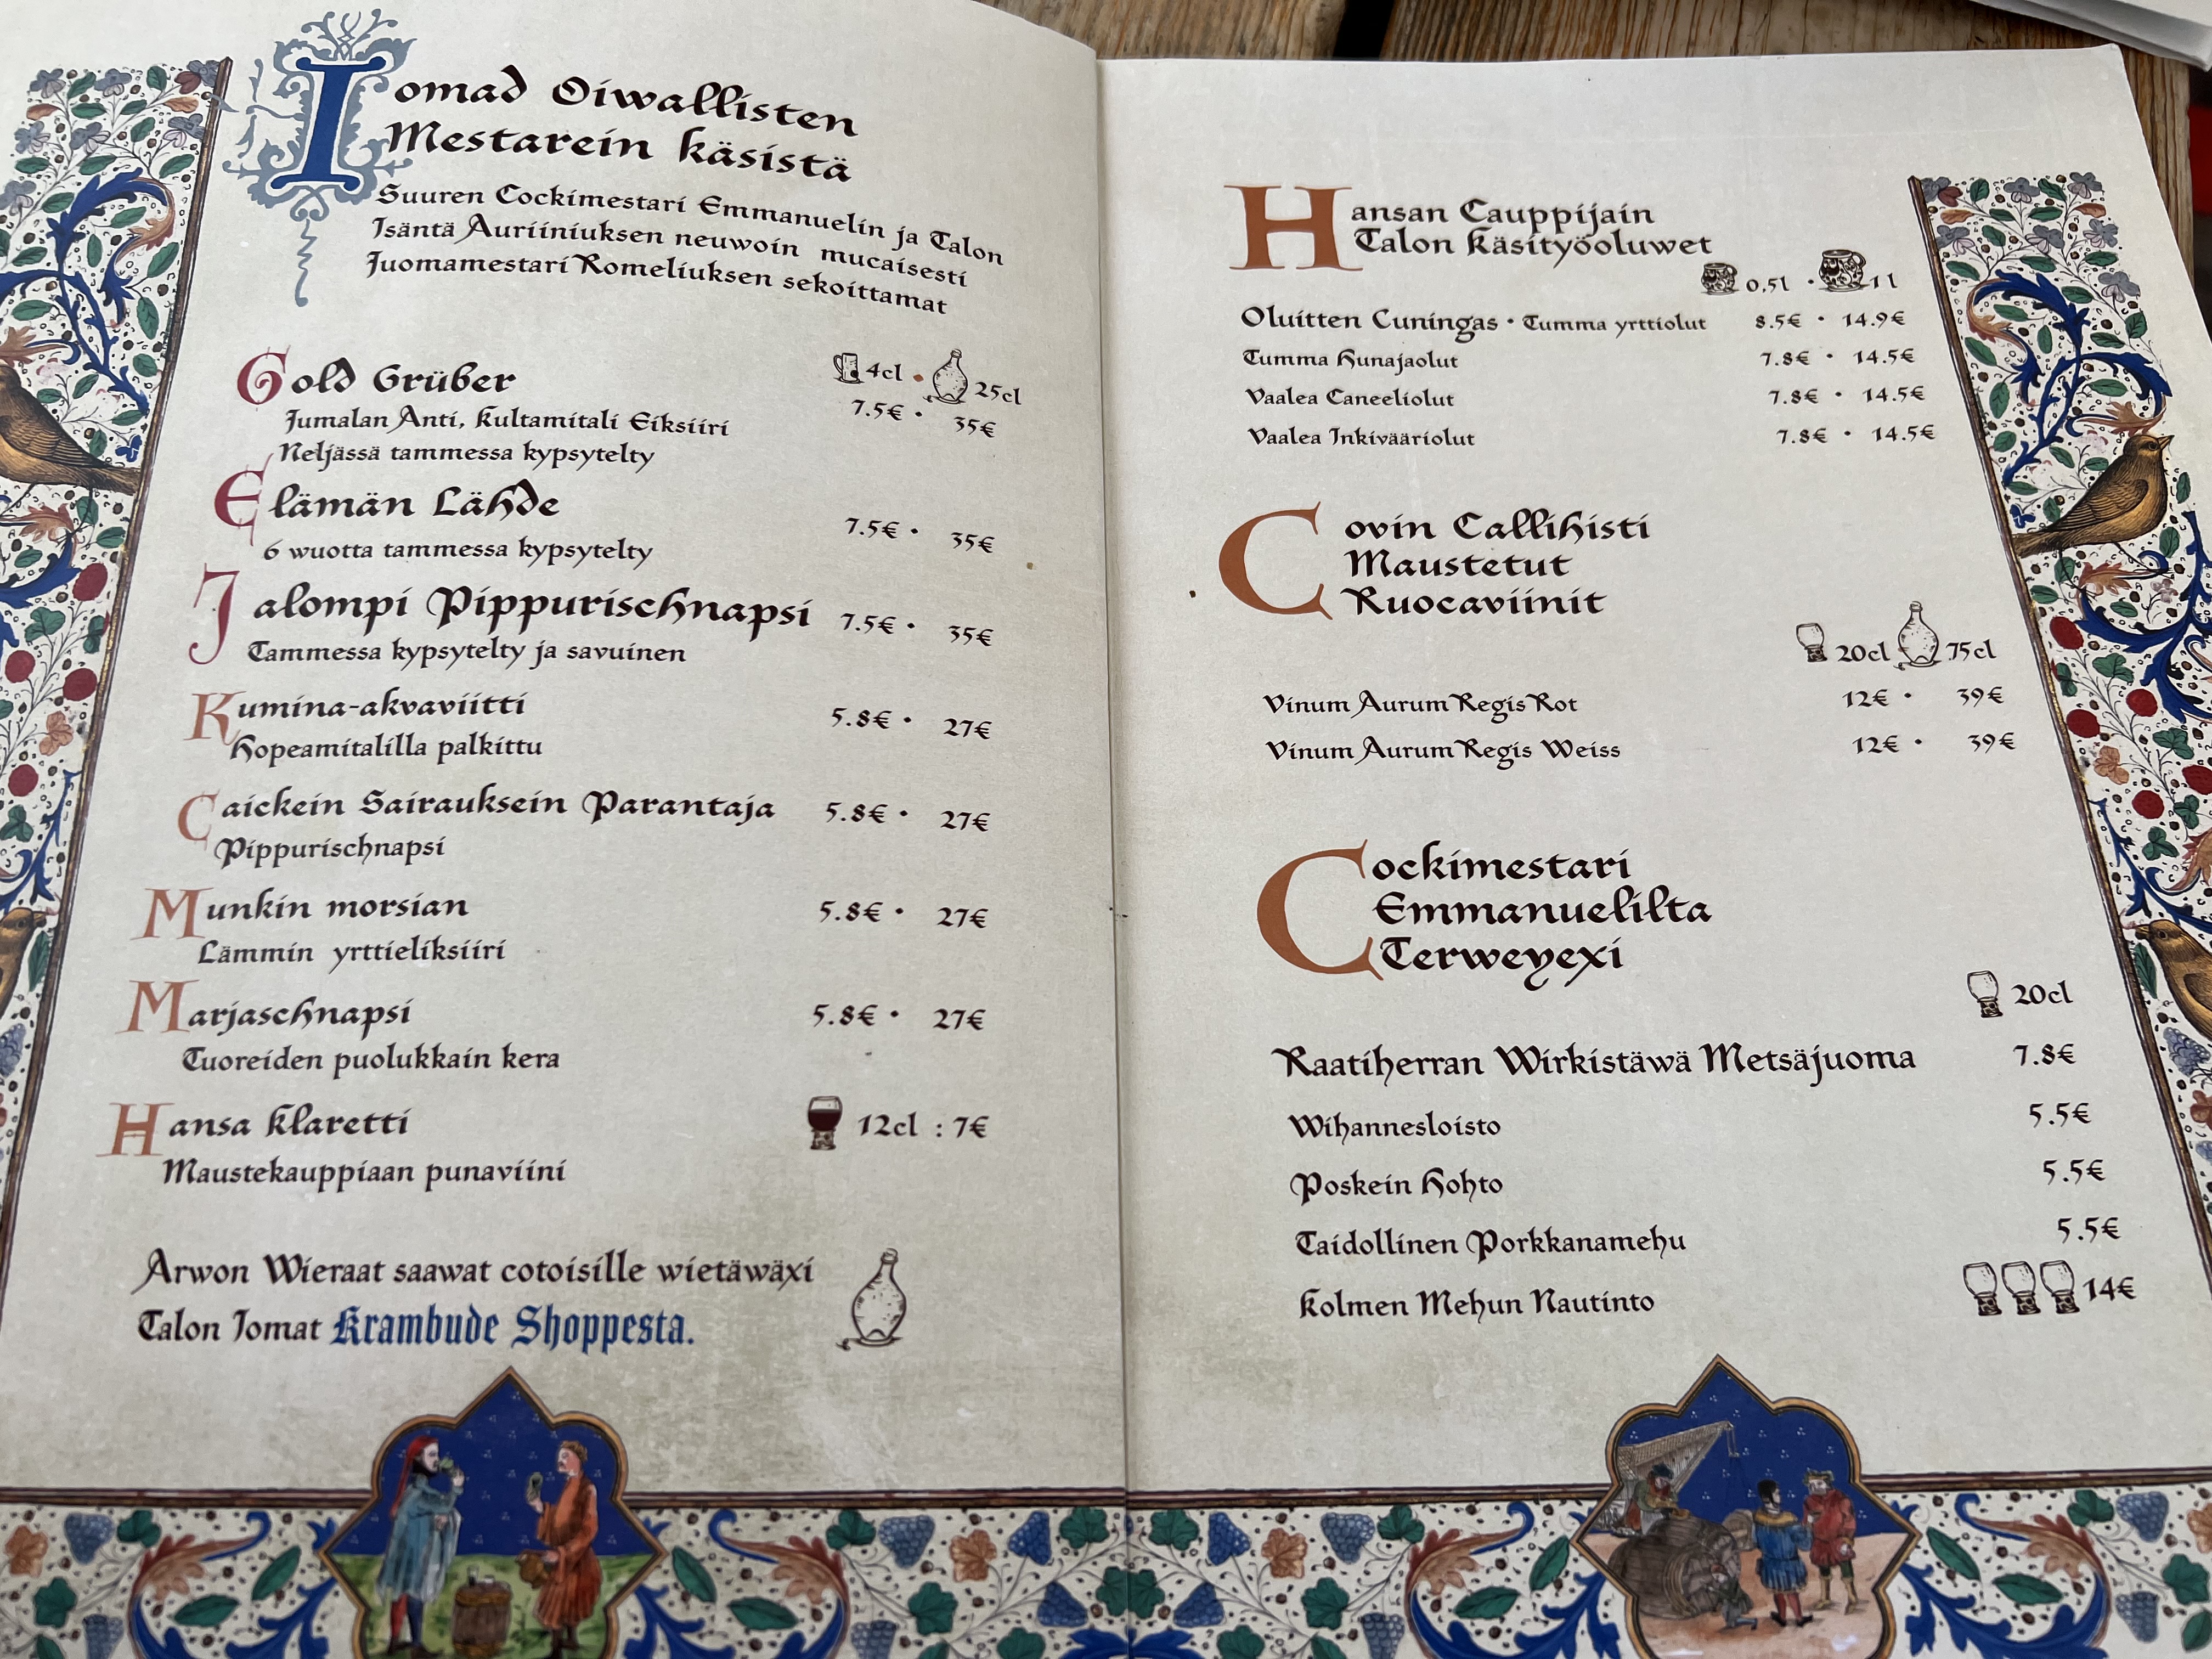 Iomad Oiwallisten
Mestarein käsistä
Suuren Cockimestari Emmanuelin ja Talon
Isäntä Auriiniuksen neuwoin mucaisesti
Juomamestari Romeliuksen sekoittamat
Gold Grüber
4cl • 25cl
Jumalan Anti, Kultamitali Eiksiiri
7.5€ • 35€
Neljässä tammessa kypsytelty
Elämän Lähde
7.5€ • 35€
6 wuotta tammessa kypsytelty
Jalompi Pippurischnapsi 7.5€ • 35€
Tammessa kypsytelty ja savuinen
Kumina-akvaviitti 5.8€ • 27€
Hopeamitalilla palkittu
Caickein Sairauksein Parantaja 5.8€ • 27€
Pippurischnapsi
Munkin morsian 5.8€ • 27€
Lämmin yrttieliksiiri
Marjaschnapsi 5.8€ • 27€
Tuoreiden puolukkain kera
Hansa Klaretti 12cl : 7€
Maustekauppiaan punaviini
Arwon Wieraat saawat cotoisille wietäwäxi
Talon Iomat Krambude Shoppesta.
Hansan Cauppijain
Talon Käsityöoluwet
0,5l • 1l
Oluitten Cuningas • Tumma yrttiolut 8.5€ • 14.9€
Tumma Hunajaolut 7.8€ • 14.5€
Vaalea Caneeliolut 7.8€ • 14.5€
Vaalea Inkivääriolut 7.8€ • 14.5€
Covin Callihisti
Maustetut
Ruocaviinit
20cl 75cl
Vinum Aurum Regis Rot 12€ • 39€
Vinum Aurum Regis Weiss 12€ • 39€
Cockimestari
Emmanuelilta
Terweyexi
20cl
Raatiherran Wirkistäwä Metsäjuoma 7.8€
Wihannesloisto 5.5€
Poskein Hohto 5.5€
Taidollinen Porkkanamehu 5.5€
Kolmen Mehun Nautinto 14€